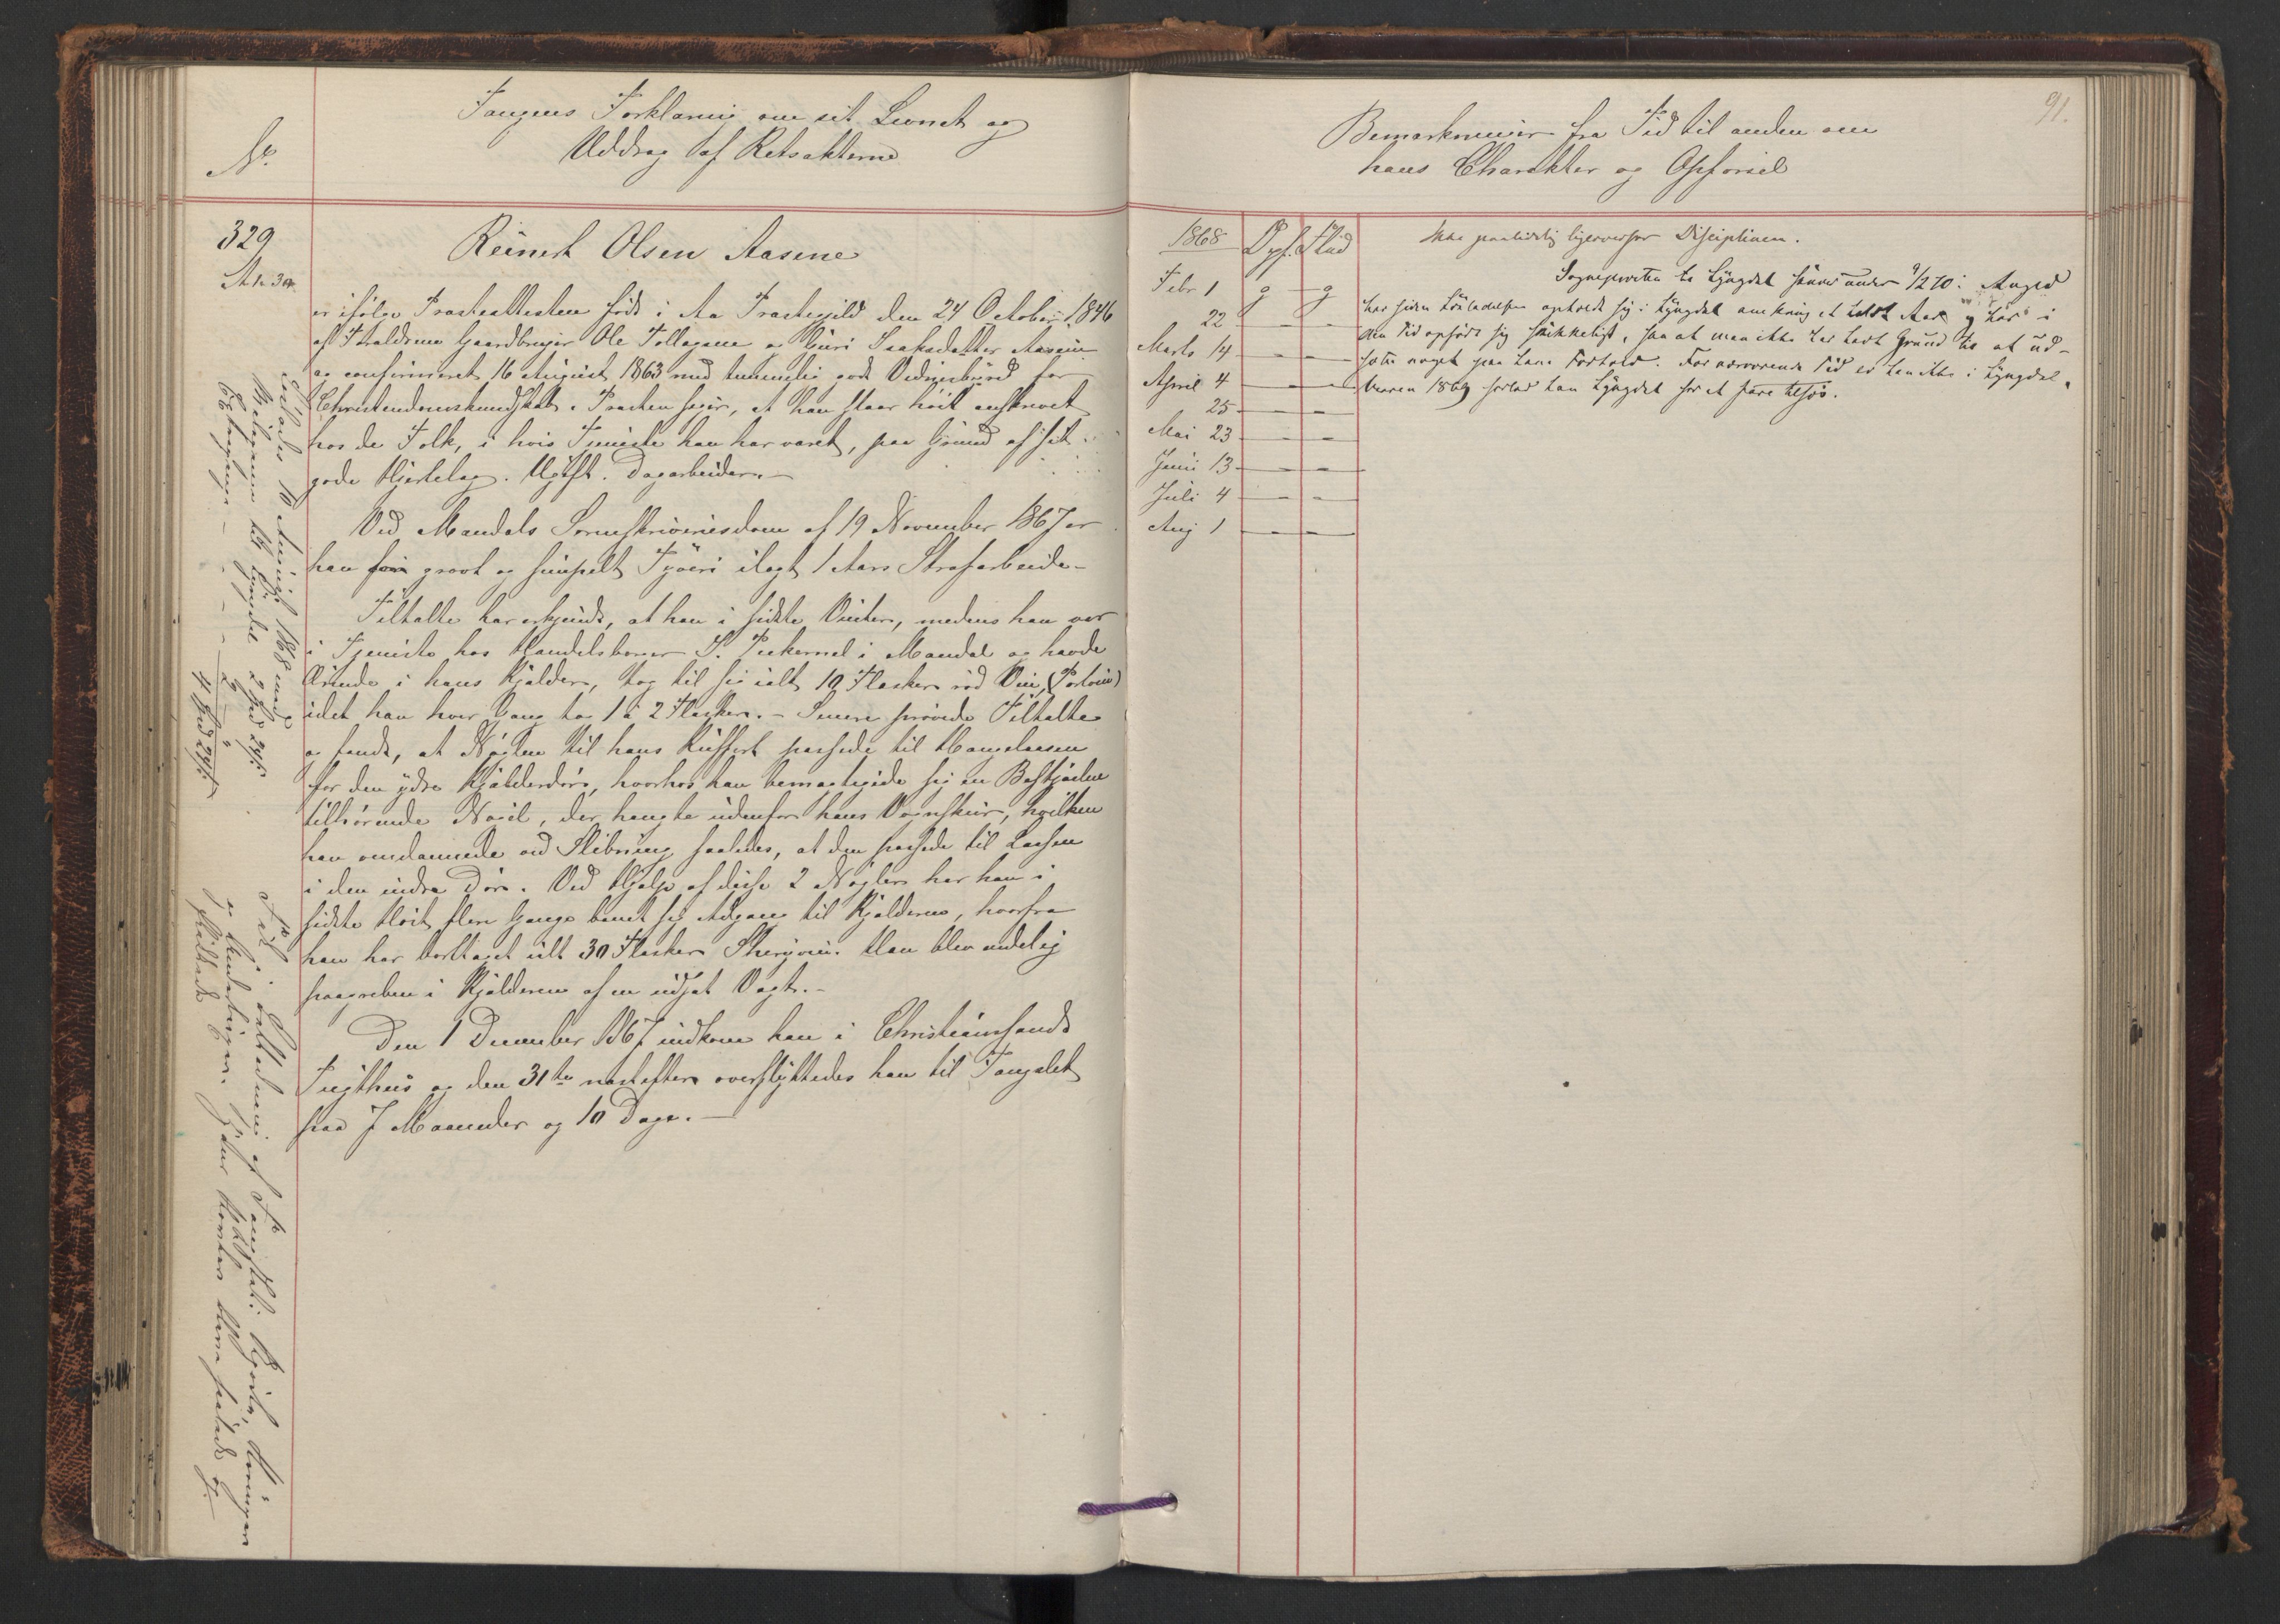 No.
Fangens Forklaring om sit Levnet og
Uddrag af Retsakterne
329
Reinert Olsen Aasene
er ifølge Præsteattesten født i Aa Præstegjeld den 24 October 1846
af Forældrene Gaardbruger Ole Tollagsen og Guri Isaksdatter Aasene
og confirmeret 16 August 1863 med temmelig godt Vidnesbyrd for
Christendomskundskab. Præsten siger, at han staar høit anskrevet
hos de Folk, i hvis Tjeneste han har været, paa Grund af sit
gode Hjertelag. Ugift. Dagarbeider.
Ved Mandals Sorenskriveriesdom af 19 November 1867 er
han for grovt og simpelt Tyveri ilagt 1 Aars Strafarbeide.
Tiltalte har erkjendt, at han i sidste Vinter, medens han var
i Tjeneste hos Handelsborger S. i Mandal og havde
Ærinde i hans Kjælder, tog til sig ialt 19 Flasker rød Vin, (Portvin)
idet han hver Gang tog 1 à 2 Flasker. - Senere prøvede Tiltalte
og fandt, at Nøglen til hans Kuffert passede til Hængelaasen
for den ydre Kjælderdør, hvorhos han bemægtigede sig en
tilhørende Nøgel, der hængte udenfor hans Vognskur, hvilken
han omdannede ved Slibning saaledes, at den passede til Laasen
i den indre Dør. Ved Hjælp af disse 2 Nøgler har han i
sidste Høst flere Gange banet sig Adgang til Kjælderen, hvorfra
han har borttaget ialt 30 Flasker Sherryvin. Han blev endelig
paagreben i Kjælderen af en udsat Vagt.-
Den 1 December 1867 indkom han i Christianssands
Tugthus og den 31te næstefter overflyttedes han til Fangslet
paa 7 Maaneder og 10 Dage.
Løslades 10 August 1868 med
til Lyngdal 2 Spd 24 s
4 Spd 24 s
91.
Bemærkninger fra Tid til anden om
hans Charakter og Opførsel
1868 Opf. Flid
Febr 1 g - g
22 - -
Marts 14 - -
April 4 - -
25 - -
Mai 23 - -
Juni 13 - -
Juli 4 - -
Aug 1 - -
Ikke paalidelig ligeoverfor Disciplinen.
Sognepresten til Lyngdal under 4/2 70: Angjd
har siden Løsladelsen opholdt sig i Lyngdal omkring et halvt Aar og har i
den Tid opført sig skikkeligt, saa at man ikke har havt Grund til at ud-
sætte noget paa hans Forhold. For nærværende Tid er han ikke i Lyngdal,
Vaaren 1869 forlod han Lyngdal for at fare tilsøs.